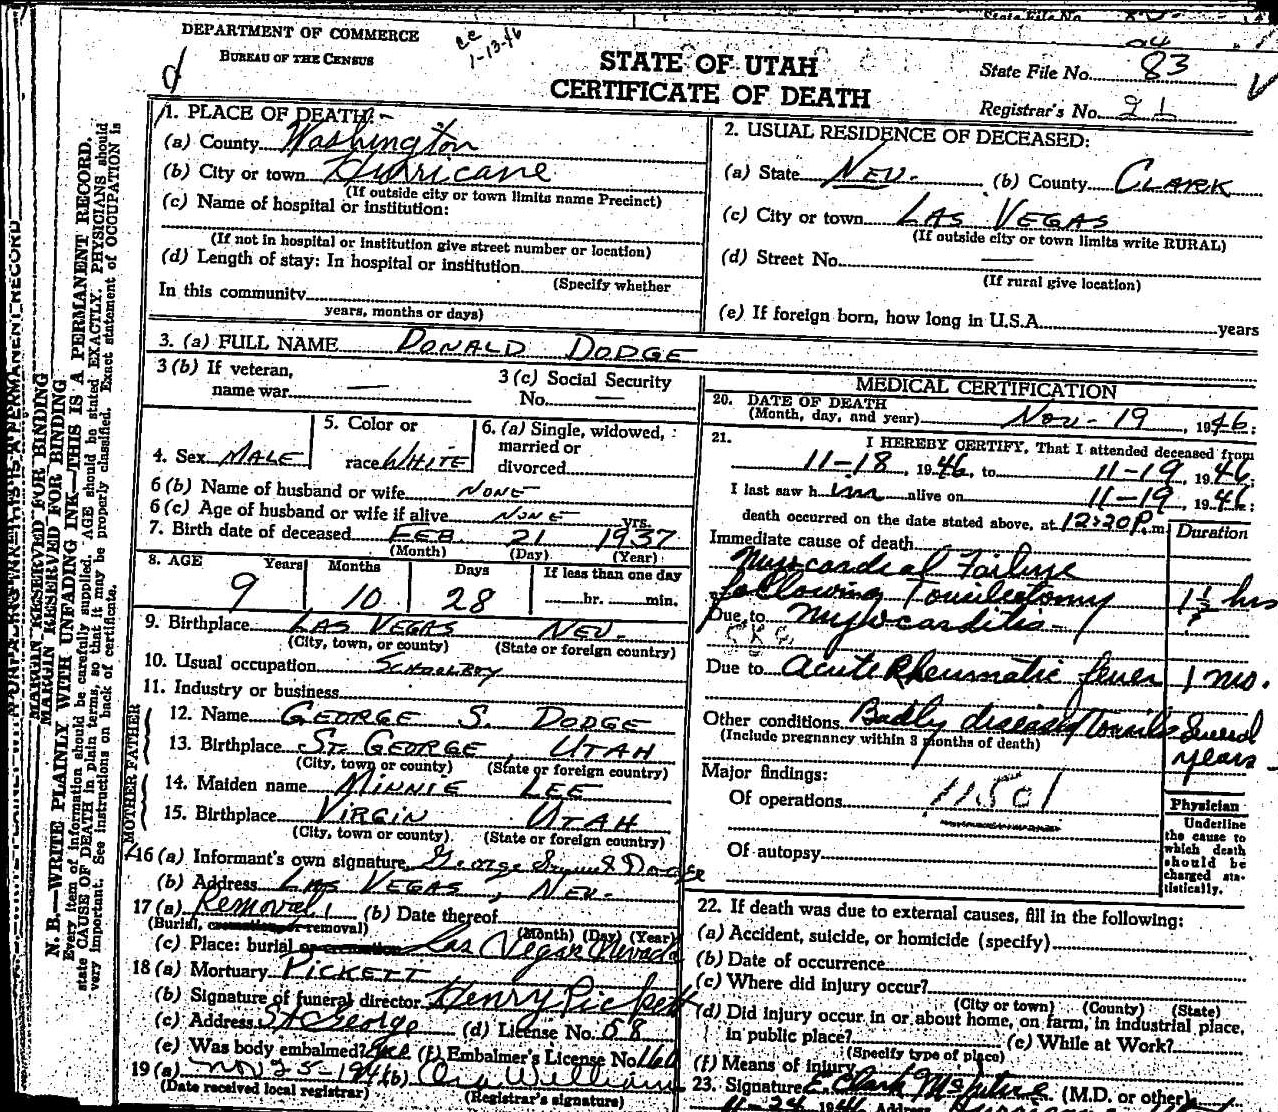 DEPARTMENT OF COMMERCE
BUREAU OF THE CENSUS
1-13-46
STATE OF UTAH
CERTIFICATE OF DEATH
State File No. 83
Registrar's No. 21
1. PLACE OF DEATH:
(a) County Washington
(b) City or town Hurricane
(If outside city or town limits name Precinct)
(c) Name of hospital or institution:
(If not in hospital or institution give street number or location)
(d) Length of stay: In hospital or institution
(Specify whether
In this community
years, months or days)
2. USUAL RESIDENCE OF DECEASED:
(a) State NEV. (b) County CLARK
(c) City or town LAS VEGAS
(If outside city or town limits write RURAL)
(d) Street No. —
(If rural give location)
(e) If foreign born, how long in U.S.A. years
3. (a) FULL NAME DONALD DODGE
3 (b) If veteran,
name war —
3 (c) Social Security
No. —
4. Sex MALE
5. Color or
race WHITE
6. (a) Single, widowed,
married or
divorced
6 (b) Name of husband or wife NONE
6 (c) Age of husband or wife if alive NONE yrs.
7. Birth date of deceased FEB 21 1937
(Month) (Day) (Year)
8. AGE Years Months Days If less than one day
9 10 28 hr. min.
9. Birthplace LAS VEGAS NEV.
(City, town, or county) (State or foreign country)
10. Usual occupation SCHOOLBOY
11. Industry or business
FATHER
12. Name GEORGE S. DODGE
13. Birthplace ST. GEORGE UTAH
(City, town or county) (State or foreign country)
MOTHER
14. Maiden name MINNIE LEE
15. Birthplace VIRGIN UTAH
(City, town or county) (State or foreign country)
16 (a) Informant's own signature George Dodge
(b) Address LAS VEGAS, NEV.
17 (a) Removal (b) Date thereof
(Burial, cremation or removal) (Month) (Day) (Year)
(c) Place: burial or cremation Las Vegas Nevada
18 (a) Mortuary PICKETT
(b) Signature of funeral director Henry Pickett
(c) Address St George (d) License No. 58
(e) Was body embalmed? Yes (f) Embalmer's License No. 160
19 (a) Nov 25-1946 (b) Ora William
(Date received local registrar) (Registrar's signature)
MEDICAL CERTIFICATION
20. DATE OF DEATH
(Month, day, and year) Nov-19, 1946;
21. I HEREBY CERTIFY, That I attended deceased from
11-18, 1946, to 11-19, 1946;
I last saw him alive on 11-19, 1946;
death occurred on the date stated above, at 12:20 P.m.
Duration
Immediate cause of death
Myocardial Failure
following Tonsilectomy 1½ hrs
Due to Myocarditis ?
Due to acute Rheumatic fever 1 mo.
Other conditions Badly diseased Tonsils Several
(Include pregnancy within 3 months of death)
years
Major findings:
Of operations 11501
Of autopsy
Physician
Underline
the cause to
which death
should be
charged sta-
tistically.
22. If death was due to external causes, fill in the following:
(a) Accident, suicide, or homicide (specify)
(b) Date of occurrence
(c) Where did injury occur?
(City or town) (County) (State)
(d) Did injury occur in or about home, on farm, in industrial place,
in public place? (e) While at Work?
(Specify type of place)
(f) Means of injury
23. Signature E. Clark McIntire (M.D. or other)
11-24 1946 Address
MARGIN RESERVED FOR BINDING
MARGIN RESERVED FOR BINDING
N. B.—WRITE PLAINLY WITH UNFADING INK—THIS IS A PERMANENT RECORD.
Every item of information should be carefully supplied. AGE should be stated EXACTLY. PHYSICIANS should
state CAUSE OF DEATH in plain terms, so that it may be properly classified. Exact statement of OCCUPATION is
very important. See instructions on back of certificate.